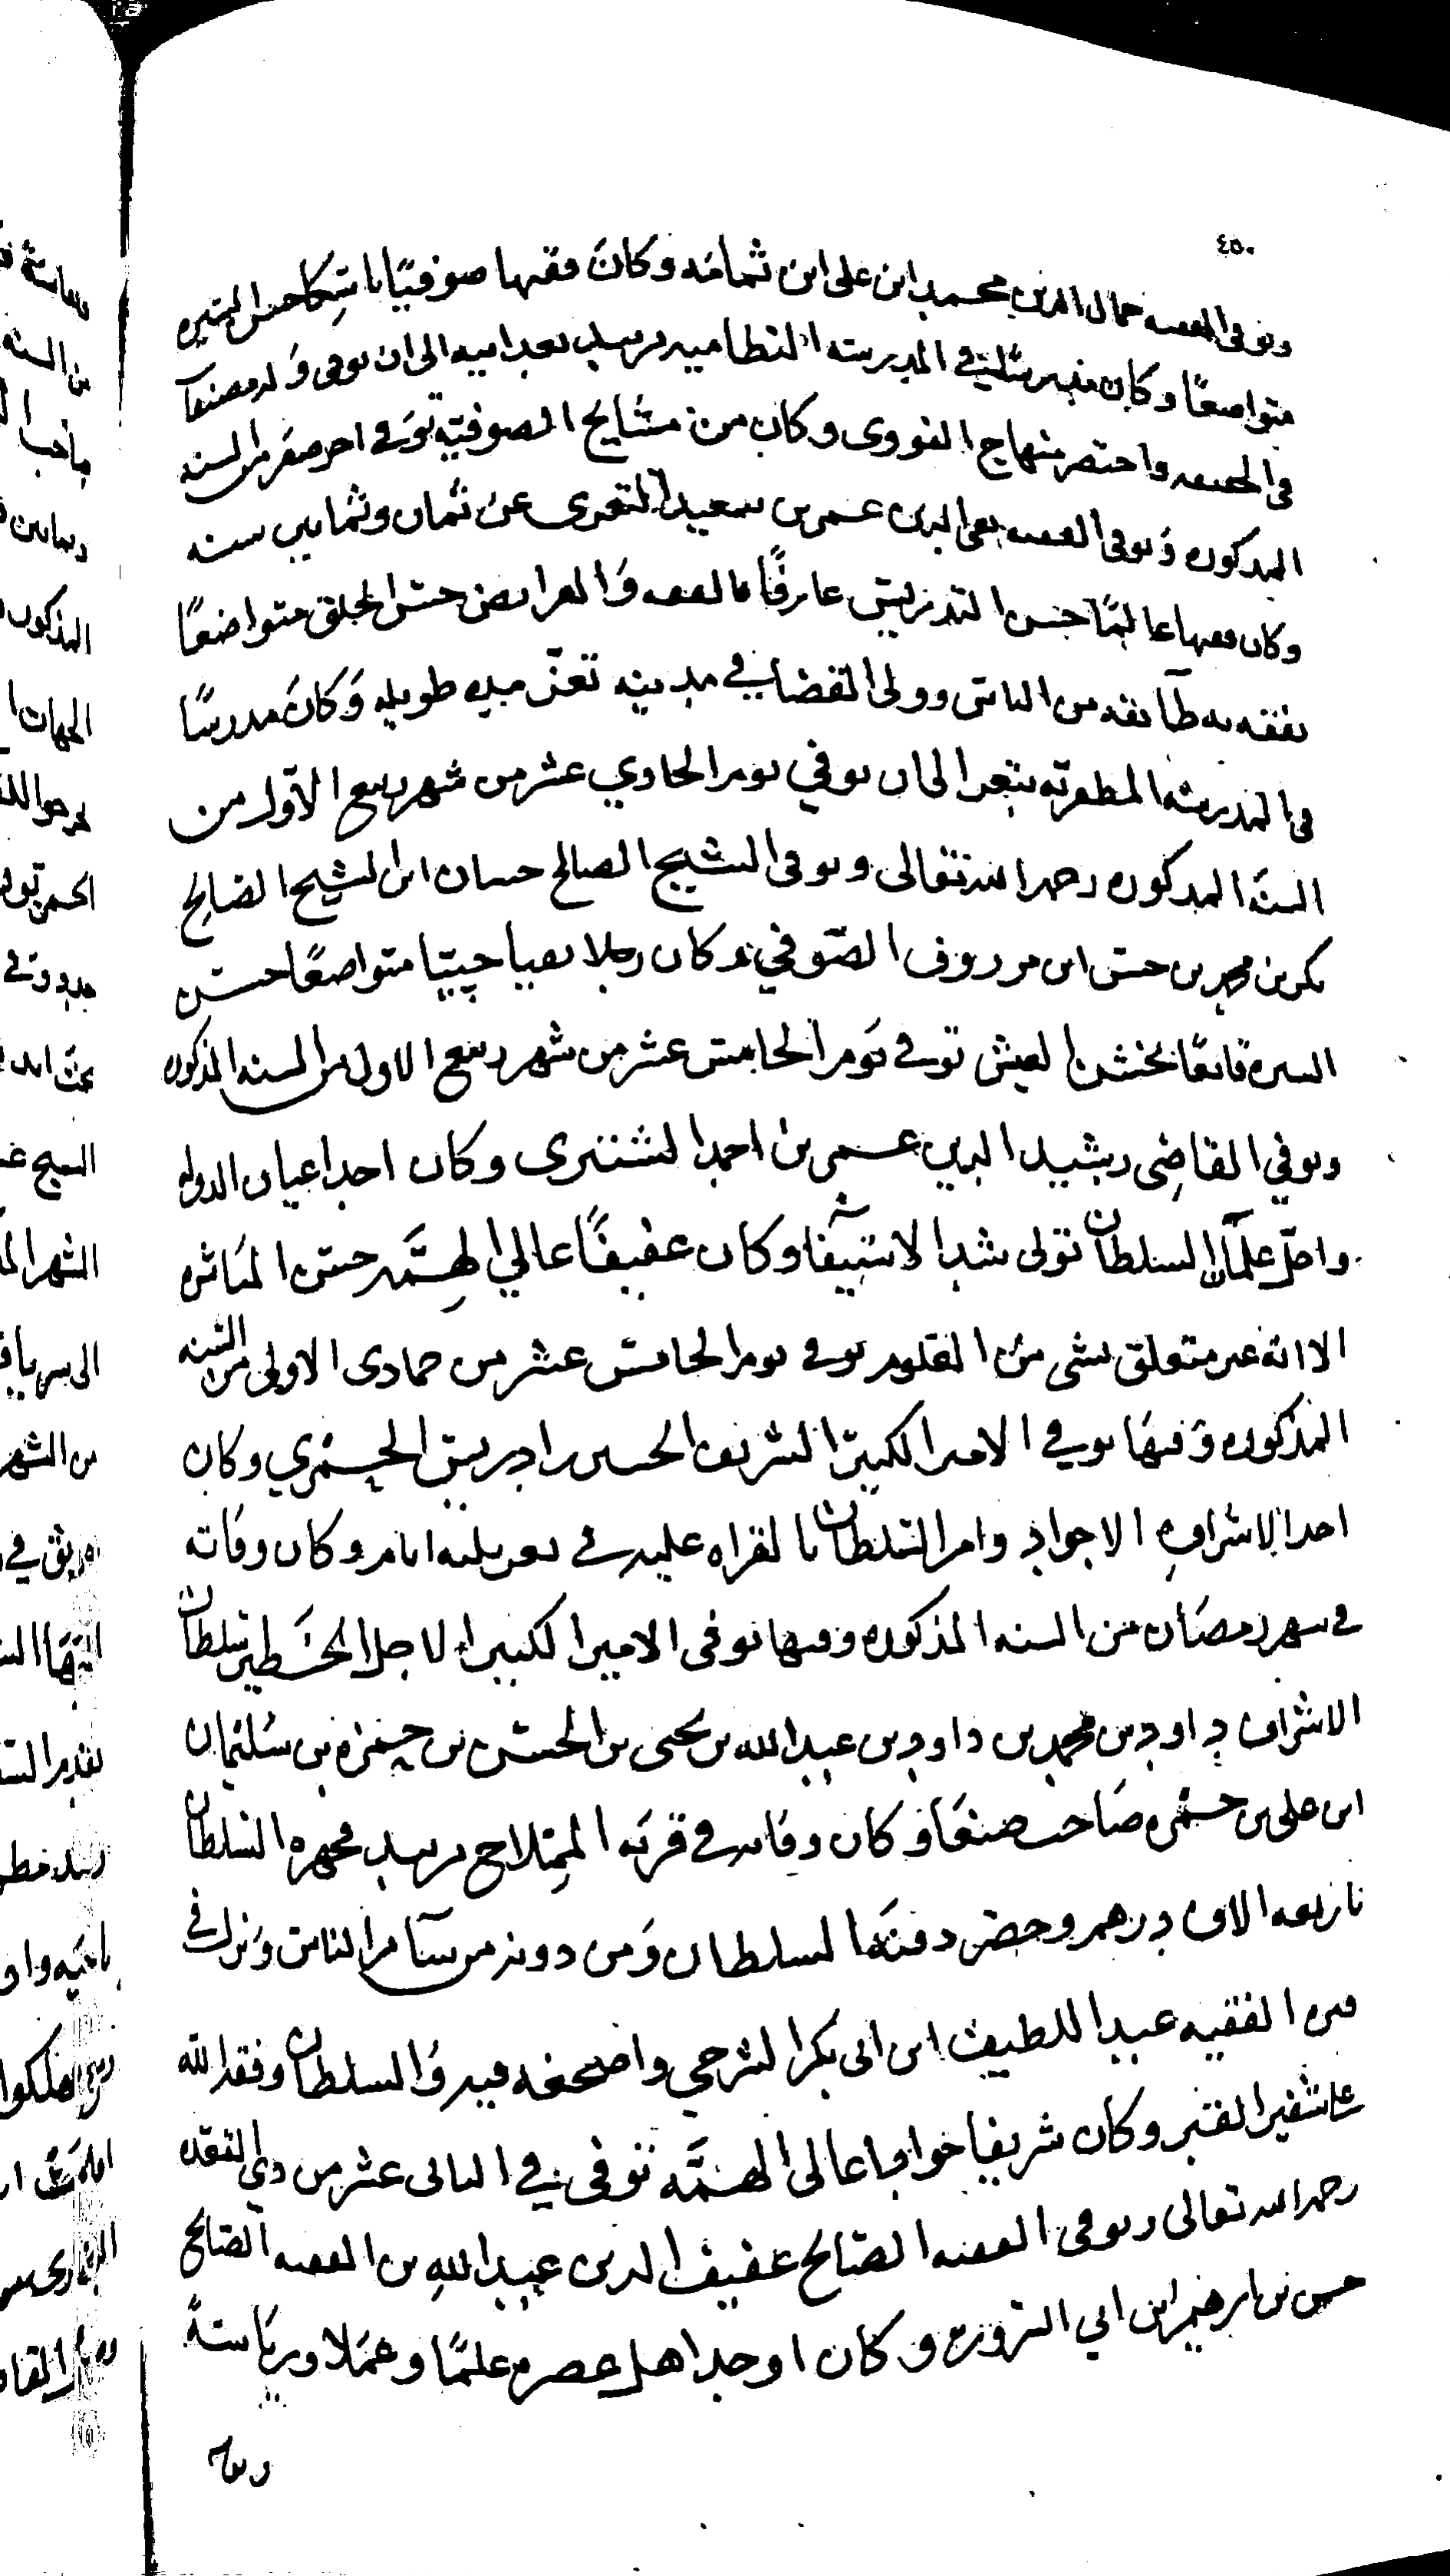 ٤٥٠
وتوفي الفقيه جمال الدين محمد ابن على ابن ثمامه وكان فقيها صوفيًا ناسكا حسن السيره
متواضعًا وكان مدرسًا في المدرسه النظاميه بزبيد بعد ابيه الى ان توفى وَله مصنف
في الحقيقه واختصر منهاج النووى وكان من مشايخ الصوفية توفي اخر صفر من السنه
المدكوره وَتوفى الفقيه تقي الدين عمر بن سعيد التعزى عن ثمان وثمانين سنه
وكان فقيها عالمًا حسن التدريس عارفًا بالفقه وَالفرايض حسن الخلق متواضعًا
تفقه به طآئفه من الناس وولى القضا في مدينه تعزّ مده طويله وَكانَ مدرسًا
في المدرسه المظفريّه بتعز الى ان توفي يوم الحادي عشر من شهر ربيع الاوّل من
السنه المدكوره رحمه الله تعالى وتوفى الشيخ الصالح حسان ابن الشيخ الصالح
بكر بن محمد بن حسن ابن مرزوف الصّوفي وكان رجلا تقيا حييّا متواضعًا حسن
السيره قانعًا بخشن العيش توفي يوم الخامس عشر من شهر ربيع الاول من السنه المذكوره
وتوفي القاضي رشيد الدين عمر بن احمد الشتيرى وكان احد اعيان الدوله
واجل غلمان السلطان تولى شد الاستيفا وكان عفيفًا عالي الهمّه حسن المآثر
الا انه غير متعلق بشى من العلوم توفي يوم الخامس عشر من جمادى الاولى من السنه
المذكوره وَفيها توفي الامير الكبير الشريف الحسين بن ادريس الحمزي وكان
احد الاشراف الاجواد وامر السلطان بالقراه عليه في تعز ثلثه ايام وكان وفاته
في شهر رمضان من السنه المذكوره وفيها توفى الامير الكبير الاجل الخطير سلطان
الاشراف داود بن محمد بن داود بن عبد الله بن يحيى بن الحسن بن حمزه بن سُليمان
ابن على بن حمزه صَاحب صنعَا وكان وفاته في قريه المملاح بزبيد فجهزه السلطان
باربعه الاف درهم وحضر دفنه السلطان وَمن دونه من سآئر الناس وَنزل في
قبره الفقيه عبد اللطيف ابن ابى بكر الشرجي واضجعه فيه وَالسلطان وفقه الله
على شفير القبر وكان شريفا جوادا عالى الهمَّه توفى في الثانى عشر من ذي القعده
رحمه الله تعالى وتوفى الفقيه الصالح عفيف الدين عبد الله بن الفقيه الصالح
حسن بن ابرهيم ابن ابي السرور وكان اوحد اهل عصره علمًا وعمَلا ورياسةً